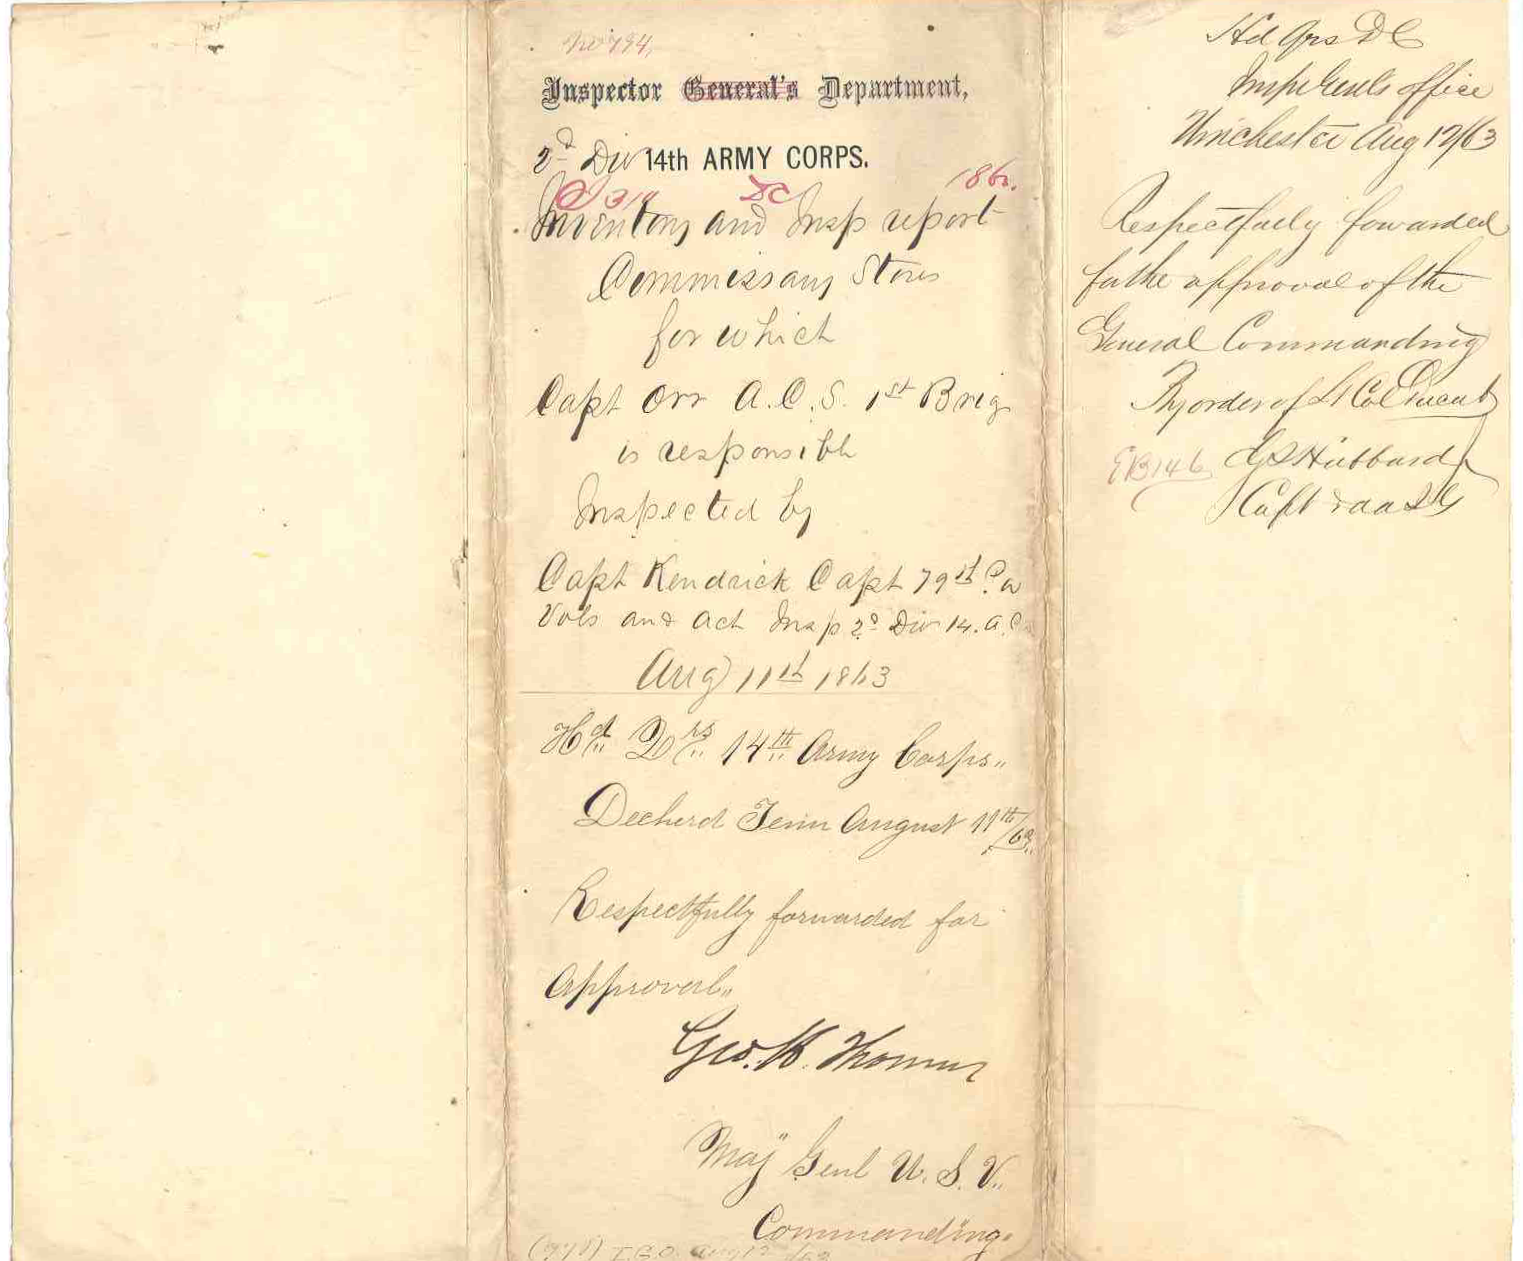 No 794,
Inspector General's Department,
2d Div 14th ARMY CORPS.
DC 186 .
Inventory and Insp report
Commissary Stores
for which
Capt Orr A.C.S. 1st Brig
is responsible
Inspected by
Capt Kendrick Capt 79th Pa
Vols and Act Insp 2d Div 14. A.C.
Aug 11th 1863
Hd Qrs 14th Army Corps
Decherd Tenn August 11th/63
Respectfully forwarded for
Approval
Geo. H. Thomas
Maj Genl U.S.V.
Commanding.
I.G.O. Aug 12 /63
Hd Qrs D C
Insp Genls office
Winchester Aug 12/63
Respectfully forwarded
for the approval of the
General Commanding
By order of Lt Col Ducat
EB 146 G S Hubbard
Capt & a a I G